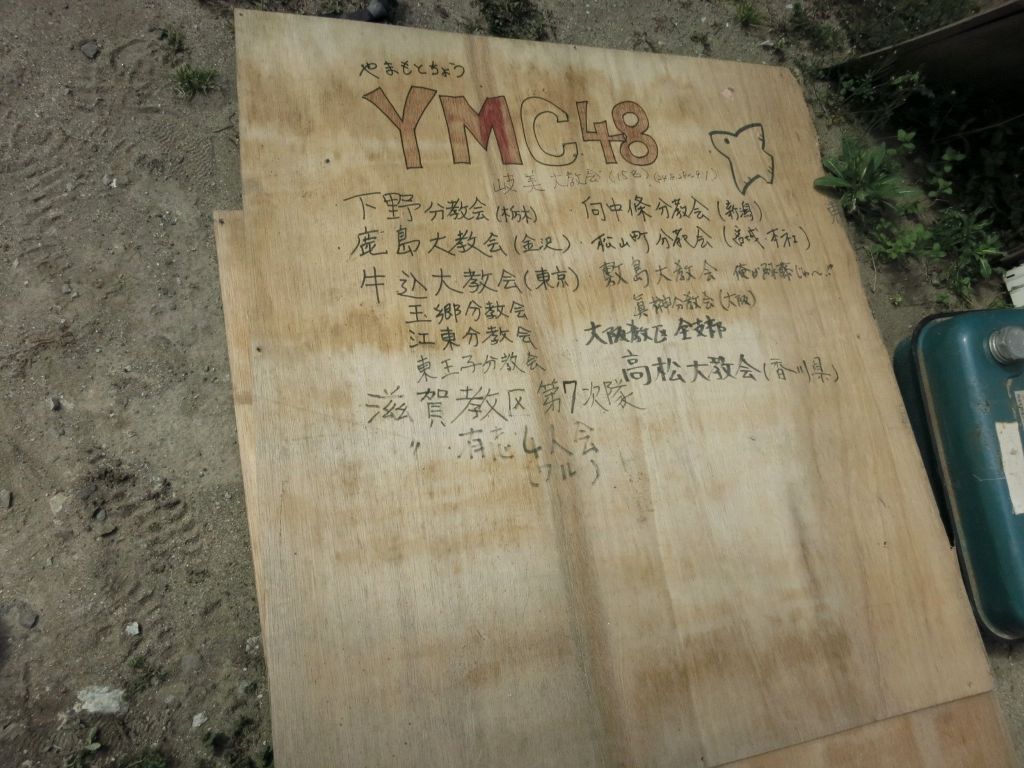 やまもとちょう
YMC48
岐美大教会(15名)
下野分教会(栃木)
鹿島大教会(金沢)
牛込大教会(東京)
玉郷分教会
江東分教会
東王子分教会
滋賀教区第7次隊
〃 有志4人会
向中條分教会(新潟)
松山町分教会(宮城、
敷島大教会
眞榊分教会(大阪)
大阪教区 全支部
高松大教会(香川県)